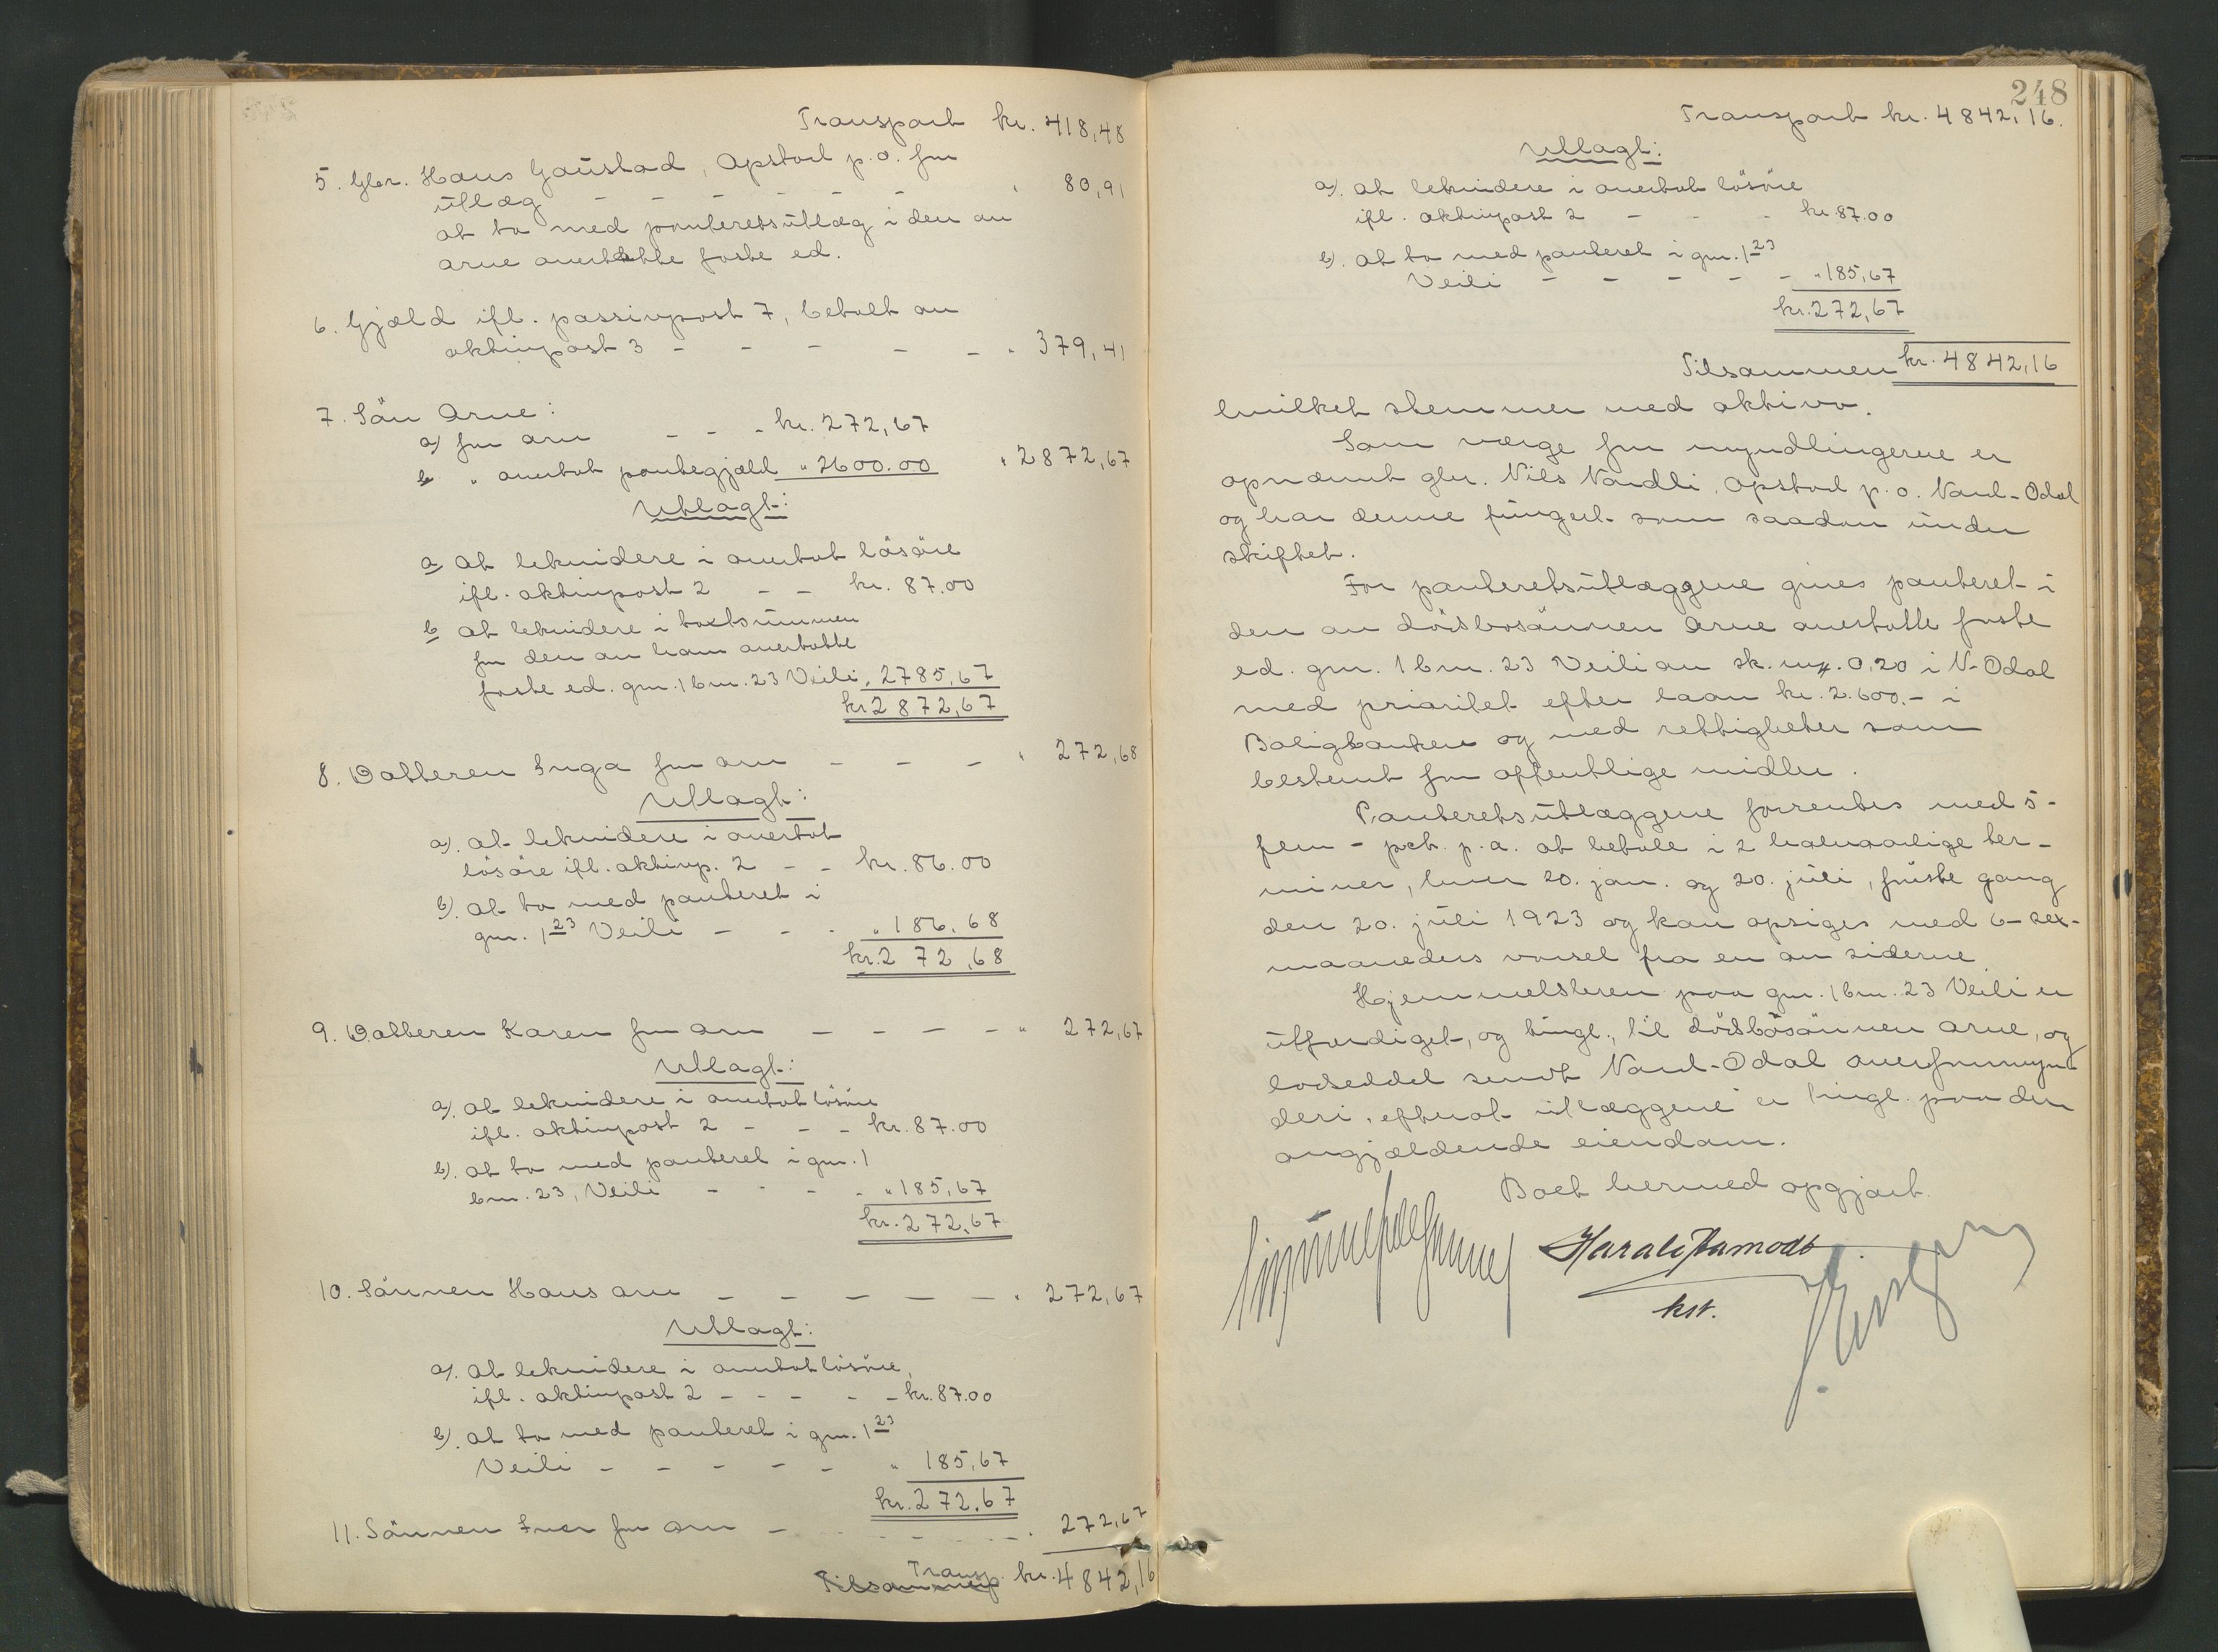 Transport kr. 418,48
5. Gbr. Hans Gaustad, Opstad p.o. for
utlæg - - - - - " 80,91
at ta med panteretsutlæg i den av
Arne overtatte faste ed.
6. Gjæld ifl. passivpost 7, betalt av
aktivpost 3 - - - - - " 379,41
7. Søn Arne:
a) for arv - - - kr. 272,67
b " overtat pantegjæld " 2600.00 " 2872,67
Utlagt:
a at lekvidere i overtat løsøre
ifl. aktivpost 2 - - kr. 87.00
b at lekvidere i takstsummen
for den av ham overtatte
faste ed. gnr. 1 bnr. 23 Veili " 2785,67
kr 2872,67
8. Datteren Inga for arv - - - " 272,68
Utlagt:
a). at lekvidere i overtat
løsøre ifl. aktivp. 2 - - kr. 86.00
b). at ta med panteret i
gnr. 1 23 Veili - - - " 186,68
kr. 272,68
9. Datteren Karen for arv - - - - " 272,67
Utlagt:
a). at lekvidere i overtat løsøre
ifl. aktivpost 2 - - - kr. 87.00
b). at ta med panteret i gnr. 1
bnr. 23, Veili - - - - " 185,67
kr. 272,67
10. Sønnen Hans arv - - - - - " 272,67
Utlagt:
a). at lekvidere i overtat løsøre,
ifl. aktivpost 2 - - - - - kr. 87.00
b). at ta med panteret i gnr. 1 23
Veili - - - - - " 185,67
kr. 272,67
11. Sønnen Iver for arv - - - - - " 272,67
Tilsammen Transp. kr. 4842,16
248
Transport kr. 4842,16.
Utlagt:
a). at lekvidere i overtat løsøre
ifl. aktivpost 2 - - - kr. 87.00
b). at ta med panteret i gnr. 1 23
Veili - - - - - " 185,67
kr. 272,67
Tilsammen kr. 4842,16
hvilket stemmer med aktiva.
Som verge for myndlingerne er
opnævnt gbr. Nils Nordli, Opstad p.o. Nord-Odal
og har denne fungert som saadan under
skiftet.
For panteretsutlæggene gives panteret i
den av dødsbosønnen Arne overtatte faste
ed. gnr. 1 bnr. 23 Veili av sk. mrk. 0,20 i N-Odal
med prioritet efter laan kr. 2.600.- i
Boligbanken og med rettigheter som
bestemt for offentlige midler.
Panteretsutlæggene forrentes med 5-
fem - pct. p.a. at betale i 2 halvaarlige ter-
miner, hver 20. jan. og 20. juli, første gang
den 20. juli 1923 og kan opsiges med 6- sex-
maaneders varsel fra en av siderne.
Hjemmelsbrev paa gnr. 1 bnr. 23 Veili er
utfærdiget, og tingl., til dødsbosønnen Arne, og
lodseddel sendt Nord-Odal overformyn-
deri, efterat utlæggene er tingl. paa den
angjældende eiendom.
Boet hermed opgjort.
Harald Aamodt
kst.